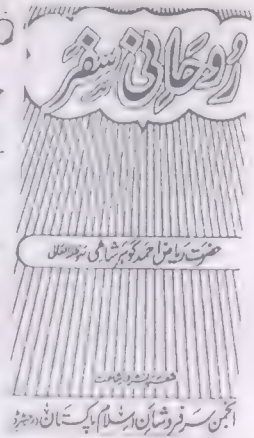 رُوحَانی سفر
حضرت ریاض احمد گوہر شاہی مدظلہ العالی
شعبہ نشر و اشاعت
انجمن سرفروشانِ اسلام پاکستان (رجسٹرڈ)